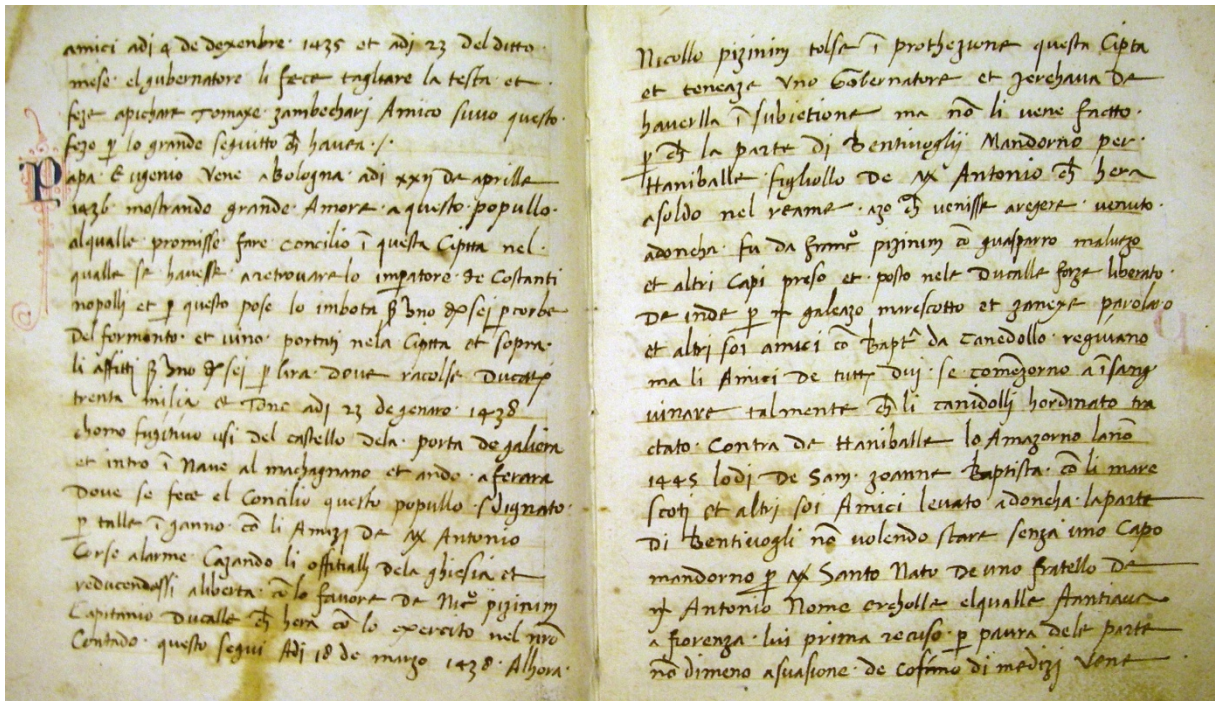 amici adi 4 de dexenbre · 1435 et adi 23 del ditto ·
mese · el gubernatore li fece tagliare la testa et ·
feze apichare Tomaxe · zambechari Amico suvo questo ·
fezo p lo grande seguitto ch havea ·/·
Papa · Eugenio vene a Bologna · adi xxij de aprille
1436 · mostrando grande · Amore · a questo · popullo ·
alqualle · promisse · fare concilio ī questa Ciptta nel ·
qualle se havesse · a retrovare lo imperatore · de Costanti
nopolli et p questo pose lo imbota
Del formento · et vino · portati nela Ciptta et sopra ·
li affitti p lira · dove racolse Ducati
trenta milia et Tone adi 23 de genaro · 1438
chomo fugitivo usi del castello dela · porta de galiera
et intro ī Nave al machagnano et ando · a ferara
Dove se fece el Concilio questo popullo · sdignato ·
p talle īganno · cō li Amizi De Antonio
Corse alarme · Cazando li offitialj Dela ghiesia et
reducendossi a liberta · cō lo favore De Nicº pizinim
Capitanio Ducalle ch hera cō lo exercito nel nrō
Contado · questo segui Adi 18 de marzo 1438 · Alhora ·
Nicollo pizinim tolse ī prothezione questa Cipta
et teneaze uno Gobernatore et zerchava De
haverlla ī subietione ma nō li vene factto ·
p ch la parte di Bentivoglij Mandorno per ·
Haniballe · figliollo De Antonio ch hera
a soldo nel reame · azo ch venisse a regere · venuto ·
adoncha · fu da Francº pizinim cō guasparro malvezo
et altri Capi preso et · posto nele Ducalle forze liberato ·
De inde p galeazo marescotto et zanexe parolaro
et altri soi amici cō Bapta da Canedollo · regivano
ma li Amici De tutti dui · se comezorno a īsang
uinare talmente ch li canidolli hordinato tra
ctato · Contra de Haniballe lo Amazorno lanō
1445 lodi De Sam · zoanne Baptista · cō li mare
scoti et altri soi Amici levato adoncha · la parte
Di Bentivogli nō volendo stare senza uno Capo
mandorno p Santo Nato De uno fratello De
Antonio Nome ercholle elqualle
a fiorenza · lui prima recuso · p paura dele parte
nō dimeno a suasione · de cosimo di medizi vene